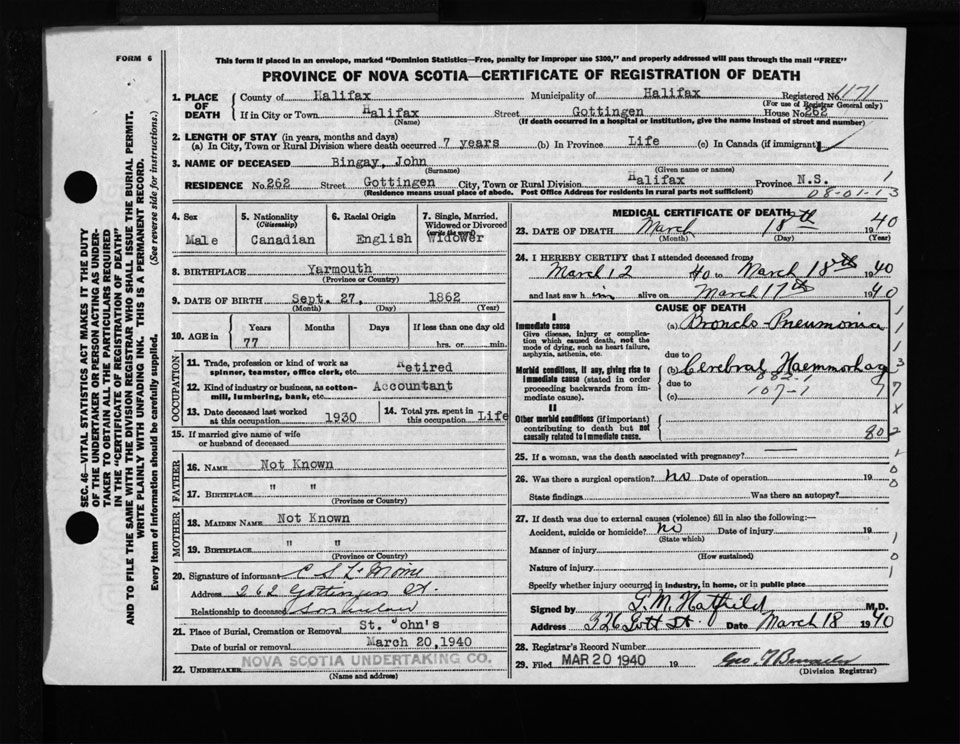 FORM 6
This form if placed in an envelope, marked "Dominion Statistics—Free, penalty for improper use $300," and properly addressed will pass through the mail "FREE"
PROVINCE OF NOVA SCOTIA—CERTIFICATE OF REGISTRATION OF DEATH
1. PLACE OF DEATH
County of Halifax Municipality of Halifax Registered No. 1171
(For use of Registrar General only)
If in City or Town Halifax Street Gottingen House No. 262
(Name) (If death occurred in a hospital or institution, give the name instead of street and number)
2. LENGTH OF STAY (in years, months and days)
(a) In City, Town or Rural Division where death occurred 7 years (b) In Province Life (c) In Canada (if immigrant)
3. NAME OF DECEASED Bingay, John
(Surname) (Given name or names)
RESIDENCE No. 262 Street Gottingen City, Town or Rural Division Halifax Province N.S. 1
(Residence means usual place of abode. Post Office Address for residents in rural parts not sufficient) 08-01-13
4. Sex
Male
5. Nationality
(Citizenship)
Canadian
6. Racial Origin
English
7. Single, Married, Widowed or Divorced
(write the word)
Widower
8. BIRTHPLACE Yarmouth
(Province or Country)
9. DATE OF BIRTH Sept. 27, 1862
(Month) (Day) (Year)
10. AGE in
Years Months Days If less than one day old
77 hrs. or min.
OCCUPATION
11. Trade, profession or kind of work as spinner, teamster, office clerk, etc. Retired
12. Kind of industry or business, as cotton-mill, lumbering, bank, etc. Accountant
13. Date deceased last worked at this occupation 1930
14. Total yrs. spent in this occupation Life
15. If married give name of wife or husband of deceased
FATHER
16. NAME Not Known
17. BIRTHPLACE " "
(Province or Country)
MOTHER
18. MAIDEN NAME Not Known
19. BIRTHPLACE " "
(Province or Country)
20. Signature of informant
Address 262 Gottingen St.
Relationship to deceased Son in law
21. Place of Burial, Cremation or Removal St. John's
Date of burial or removal March 20, 1940
22. UNDERTAKER NOVA SCOTIA UNDERTAKING CO.
(Name and address)
MEDICAL CERTIFICATE OF DEATH
23. DATE OF DEATH March 18th 1940
(Month) (Day) (Year)
24. I HEREBY CERTIFY that I attended deceased from
March 12 40 to March 18th 1940
and last saw him alive on March 17th 1940
CAUSE OF DEATH
I
Immediate cause
Give disease, injury or complication which caused death, not the mode of dying, such as heart failure, asphyxia, asthenia, etc.
(a) Broncho-Pneumonia
due to
Morbid conditions, if any, giving rise to immediate cause (stated in order proceeding backwards from immediate cause).
(b) Cerebral Haemmorhage
due to
(c) 107-1
II
Other morbid conditions (if important) contributing to death but not causally related to immediate cause.
25. If a woman, was the death associated with pregnancy? —
26. Was there a surgical operation? no Date of operation 19
State findings Was there an autopsy?
27. If death was due to external causes (violence) fill in also the following:—
Accident, suicide or homicide? no Date of injury 19
(State which)
Manner of injury
(How sustained)
Nature of injury
Specify whether injury occurred in industry, in home, or in public place
Signed by G. M. Hatfield M.D.
Address 326 Gott St. Date March 18 1940
28. Registrar's Record Number
29. Filed MAR 20 1940 19
(Division Registrar)
SEC. 46—VITAL STATISTICS ACT MAKES IT THE DUTY
OF THE UNDERTAKER OR PERSON ACTING AS UNDER-
TAKER TO OBTAIN ALL THE PARTICULARS REQUIRED
IN THE "CERTIFICATE OF REGISTRATION OF DEATH"
AND TO FILE THE SAME WITH THE DIVISION REGISTRAR WHO SHALL ISSUE THE BURIAL PERMIT.
WRITE PLAINLY WITH UNFADING INK. THIS IS A PERMANENT RECORD.
Every item of information should be carefully supplied. (See reverse side for instructions.)